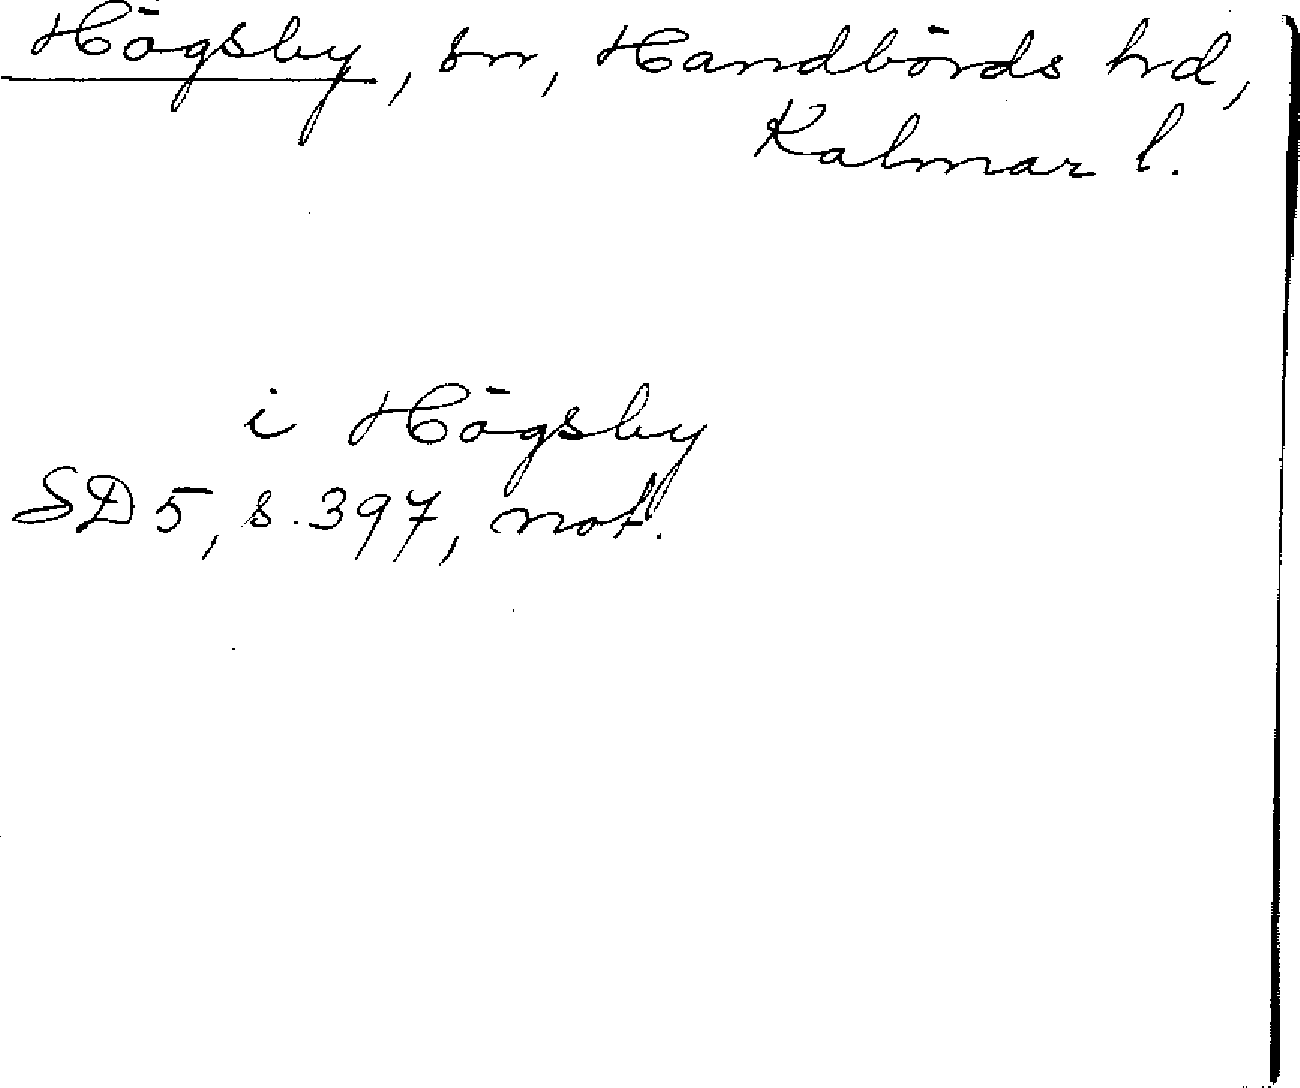 Högsby, sn, Handbörds hrd,
Kalmar l.
i Högsby
SD 5, s. 397, not.